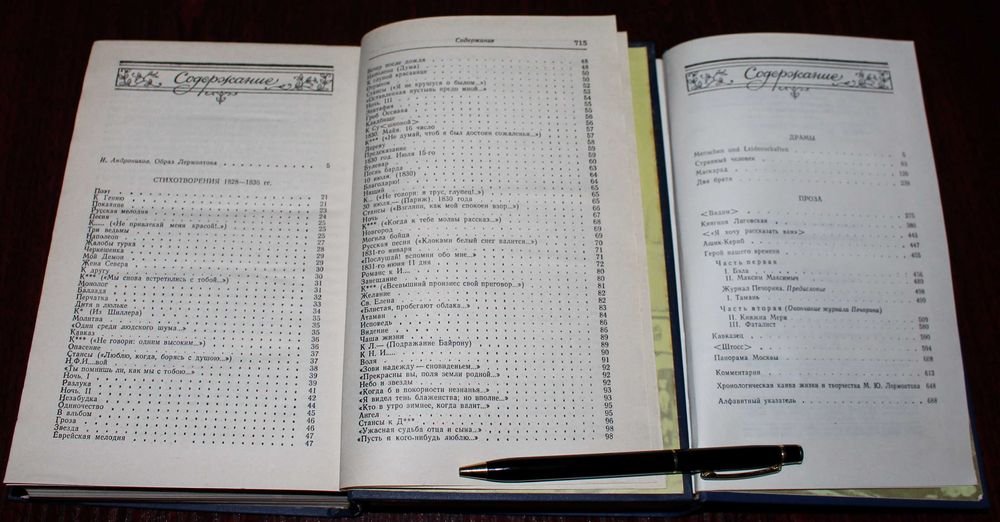 Содержание
И. Андроников. Образ Лермонтова 5
СТИХОТВОРЕНИЯ 1828—1836 гг.
Поэт 21
К Гению 21
Покаяние 22
Русская мелодия 23
Песня 24
К..... («Не привлекай меня красой!..») 25
Три ведьмы 25
Наполеон 25
Жалобы турка
Черкешенка
Мой Демон
Жена Севера
К другу 30
К*** («Мы снова встретились с тобой...»)
Монолог
Баллада
Перчатка
Дитя в люльке
К* (Из Шиллера)
Молитва 35
«Один среди людского шума...» 35
Кавказ
К*** («Не говори: одним высоким...»)
Опасение
Стансы («Люблю, когда, борясь с душою...»)
Н.Ф.И...вой
«Ты помнишь ли, как мы с тобою...» 38
Ночь. I
Разлука
Ночь. II
Незабудка
Одиночество
В альбом 45
Гроза 46
Звезда 46
Еврейская мелодия 47
Содержание 715
Вечер после дождя 48
Наполеон (Дума) 48
К глупой красавице 50
Стансы («Я не крушуся о былом...»)
«Оставленная пустынь предо мной...»
Ночь. III
Эпитафия
Гроб Оссиана
Кладбище
К Су<шковой>
1830. Майя. 16 число
К*** («Не думай, чтоб я был достоин сожаленья...»)
Дереву
Предсказание
1830 год. Июля 15-го
Булевар
Песнь барда
10 июля. (1830)
Благодарю!
Нищий
К... («Не говори: я трус, глупец!..»)
30 июля.— (Париж). 1830 года
Стансы («Взгляни, как мой спокоен взор...»)
Ночь
К*** («Когда к тебе молвы рассказ...»)
Новгород
Могила бойца
Русская песня («Клоками белый снег валится...»)
1831-го января
«Послушай! вспомни обо мне...»
1831-го июня 11 дня
Романс к И....
Завещание
К*** («Всевышний произнес свой приговор...»)
Желание
Св. Елена
«Блистая, пробегают облака...»
Атаман
Исповедь
Видение
Чаша жизни
К Л.— (Подражание Байрону)
К Н. И....
Воля
«Зови надежду — сновиденьем...»
«Прекрасны вы, поля земли родной...» 92
Небо и звезды 92
«Когда б в покорности незнанья...» 93
«Я видел тень блаженства; но вполне...»
«Кто в утро зимнее, когда валит...» 95
Ангел 95
Стансы к Д*** 96
«Ужасная судьба отца и сына...» 98
«Пусть я кого-нибудь люблю...» 98
Содержание
ДРАМЫ
Menschen und Leidenschaften
Странный человек
Маскарад
Два брата
ПРОЗА
<Вадим> 275
Княгиня Лиговская
<«Я хочу рассказать вам»> 443
Ашик-Кериб 447
Герой нашего времени 455
Часть первая
I. Бэла 456
II. Максим Максимыч
Журнал Печорина. Предисловие 498
I. Тамань 499
Часть вторая (Окончание журнала Печорина)
II. Княжна Мери 509
III. Фаталист 580
Кавказец
<Штосс> 594
Панорама Москвы 608
Комментарии 613
Хронологическая канва жизни и творчества М. Ю. Лермонтова 648
Алфавитный указатель 688